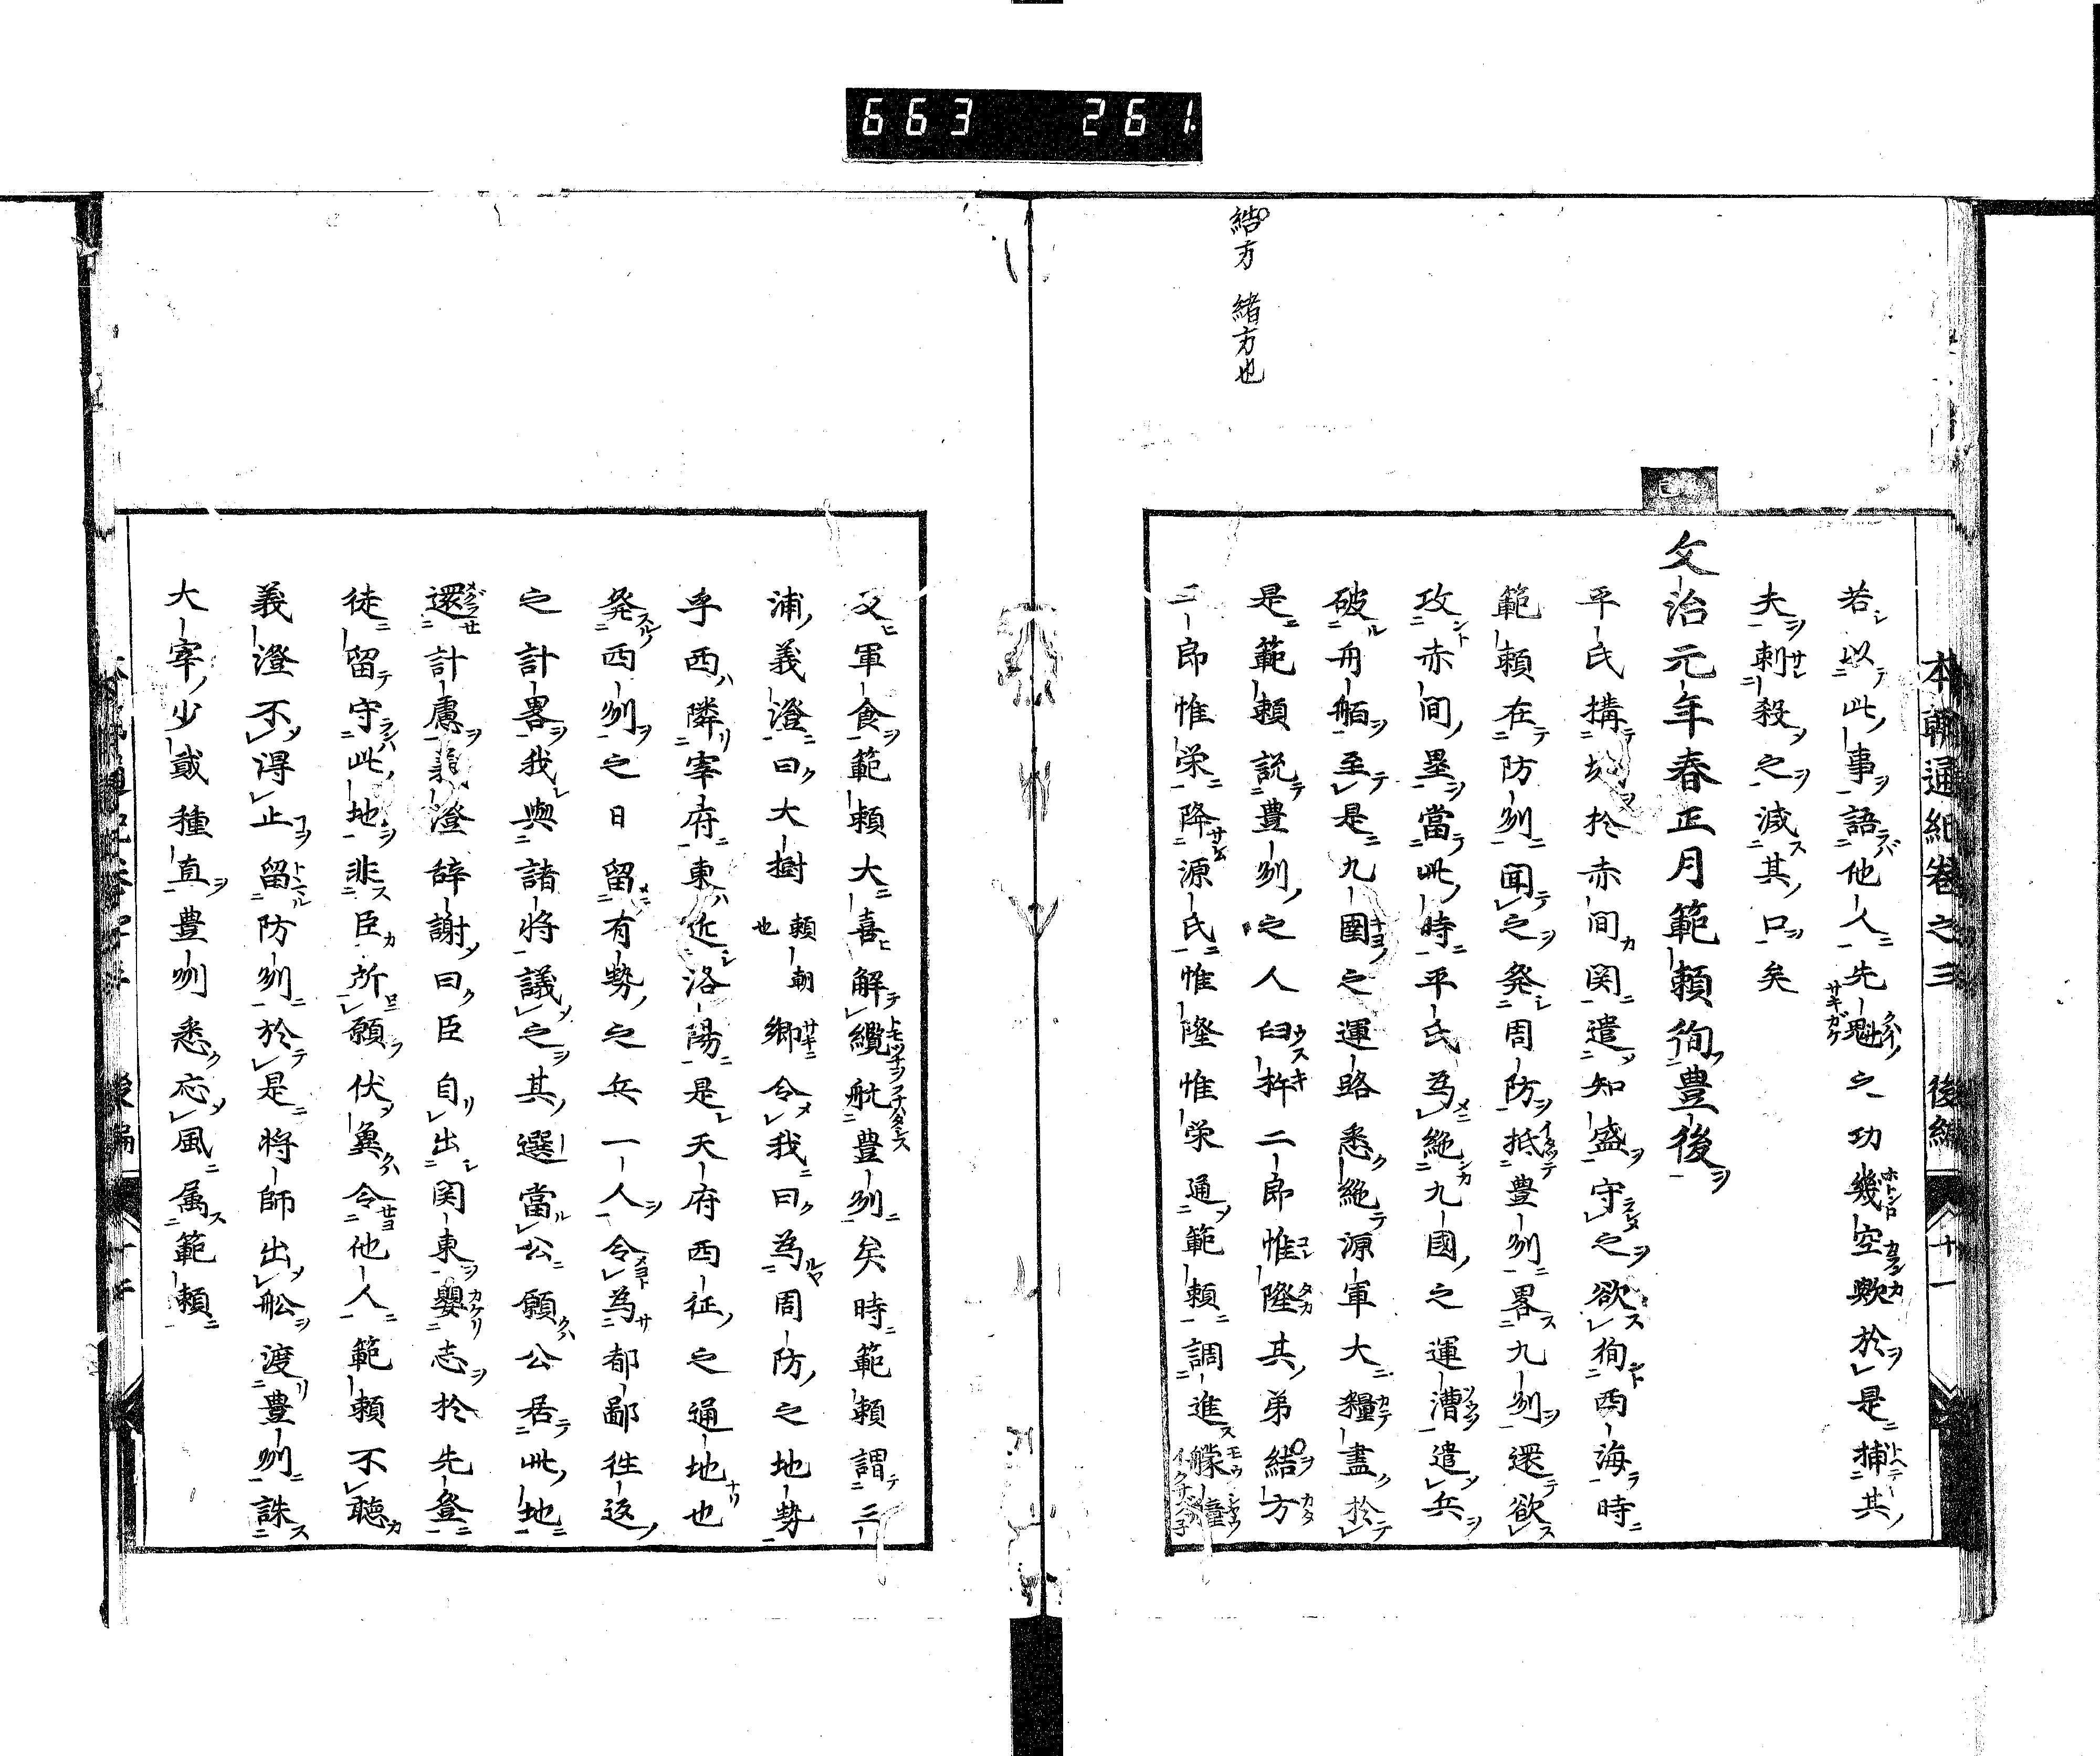 663 261
結方 緒方也
本朝通紀巻之三 後編 十一
若以此事語他人先魁之功幾空歟於是捕其
夫刺殺之滅其口矣
文治元年春正月範頼徇豊後
平氏構城於赤間関遣知盛守之欲徇西海時
範頼在防州聞之発周防抵豊州畧九州還欲
攻赤間塁當此時平氏為絶九國之運漕遣兵
破舟舶至是九國之運路悉絶源軍大糧盡於
是範頼説豊州之人臼杵二郎惟隆其弟結方
二郎惟栄降源氏惟隆惟栄通範頼調進艨艟
又軍食範頼大喜解纜航豊州矣時範頼謂三
浦義澄曰大樹頼朝也卿令我曰為周防之地勢
乎西隣宰府東近洛陽是天府西征之通地也
発西州之日留有勢之兵一人令為都鄙往返
之計畧我與諸将議之其選當公願公居此地
還計慮義澄辞謝曰臣自出関東嬰志於先登
徒留守此地非臣所願伏冀令他人範頼不聴
義澄不得止留防州於是将師出舩渡豊州誅
大宰少貳種直豊州悉忘風属範頼